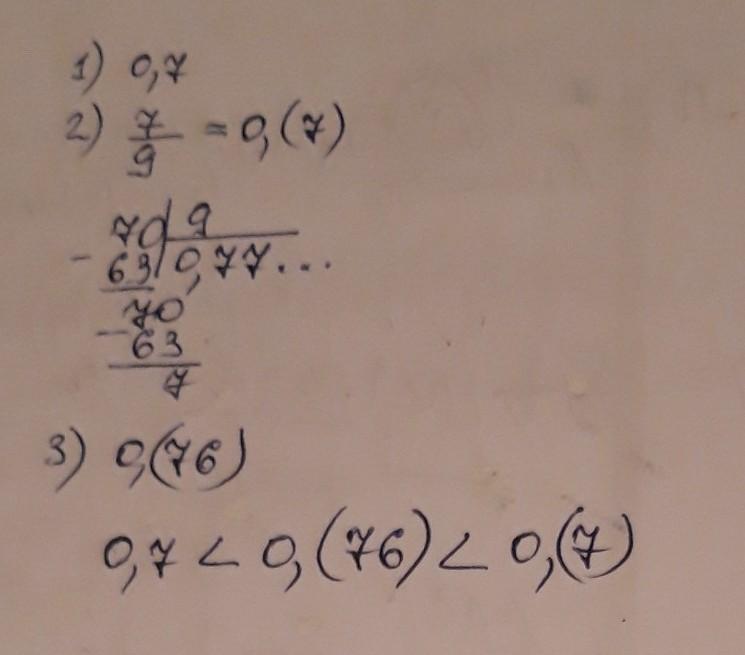 1) 0,7
2) 7/9 = 0,(7)
70 | 9
- 63 | 0,77...
70
- 63
7
3) 0,(76)
0,7 < 0,(76) < 0,(7)